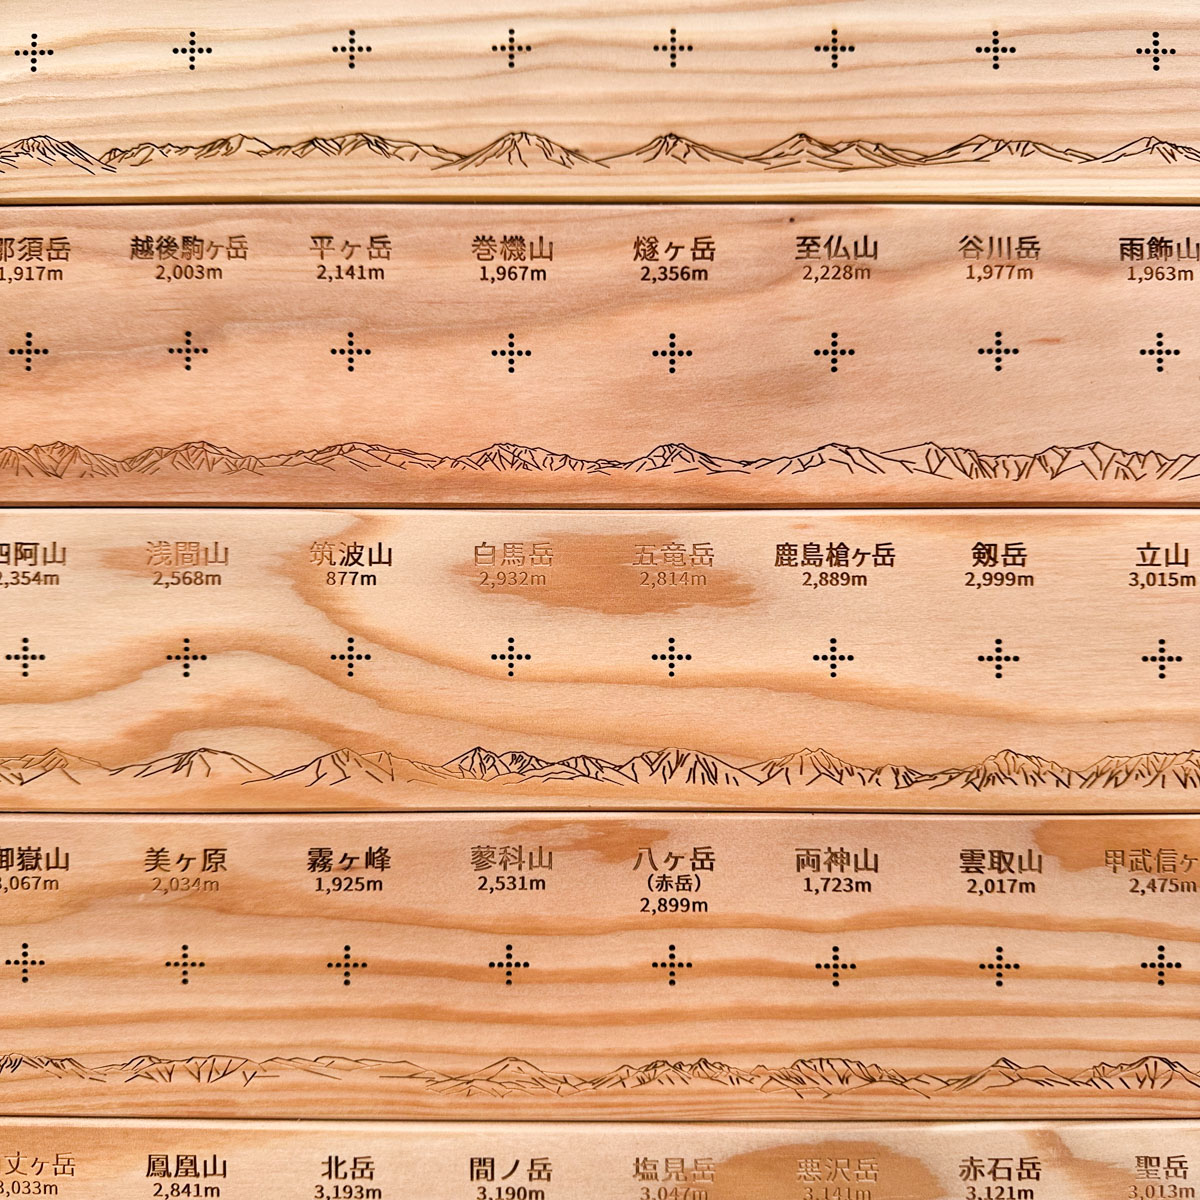 那須岳 越後駒ヶ岳 平ヶ岳 巻機山 燧ヶ岳 至仏山 谷川岳 雨飾山
1,917m 2,003m 2,141m 1,967m 2,356m 2,228m 1,977m 1,963m
四阿山 浅間山 筑波山 白馬岳 五竜岳 鹿島槍ヶ岳 剱岳 立山
2,354m 2,568m 877m 2,932m 2,814m 2,889m 2,999m 3,015m
御嶽山 美ヶ原 霧ヶ峰 蓼科山 八ヶ岳 両神山 雲取山 甲武信ヶ
3,067m 2,034m 1,925m 2,531m (赤岳) 1,723m 2,017m 2,475m
2,899m
丈ヶ岳 鳳凰山 北岳 間ノ岳 塩見岳 悪沢岳 赤石岳 聖岳
3,033m 2,841m 3,193m 3,190m 3,047m 3,141m 3,121m 3,013m